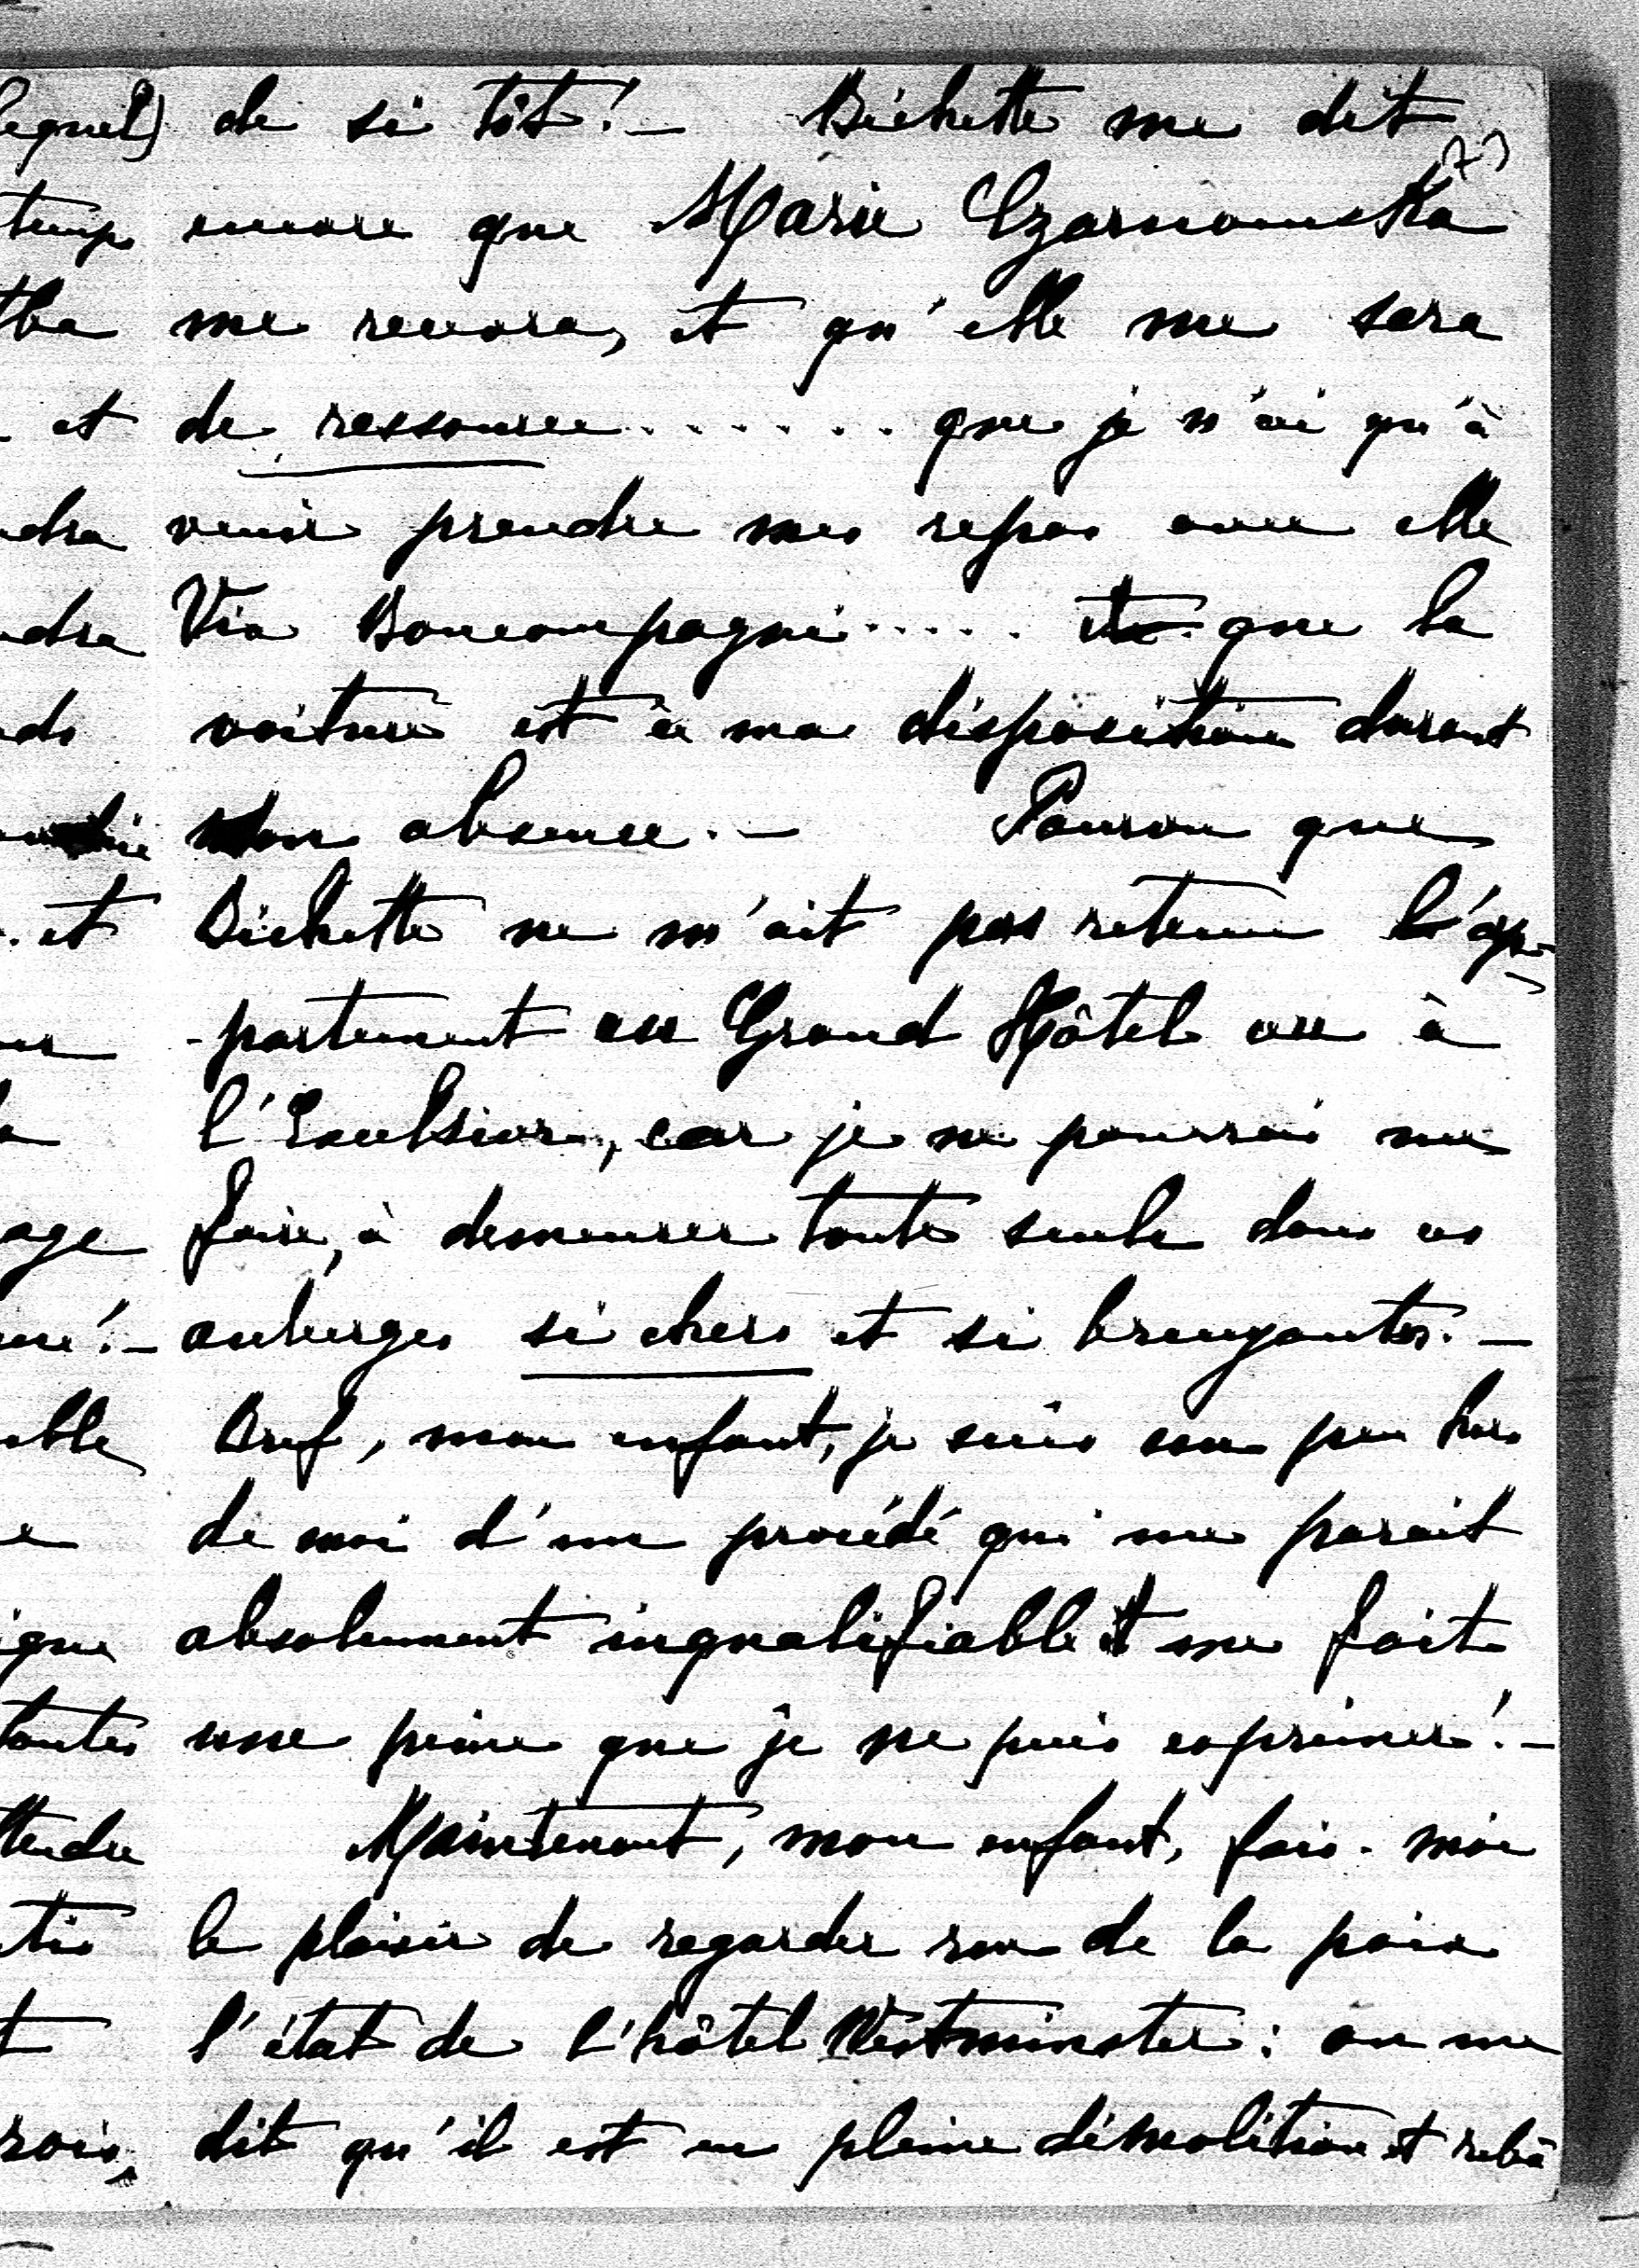 de si tôt! — Bichette me dit
73
encore que Marie Czarnowska
me recevra, et qu'elle me sera
de ressource....... que je n'ai qu'à
venir prendre mes repas avec elle
Via Boncompagni..... que la
voiture est à ma disposition durant
son absence. — Pourvu que
Bichette ne m'ait pas retenu l'ap-
-partement au Grand Hôtel ou à
l'Excelsior, car je ne pourrai me
faire, à demeurer toute seule dans ces
auberges si chers et si bruyantes. —
Bref, mon enfant, je suis un peu hors
de moi d'un procédé qui me parait
absolument inqualifiable et me fait
une peine que je ne puis exprimer! —
Maintenant, mon enfant, fais-moi
le plaisir de regarder rue de la paix
l'état de l'hôtel Westminster: on me
dit qu'il est en pleine démolition et rebâ